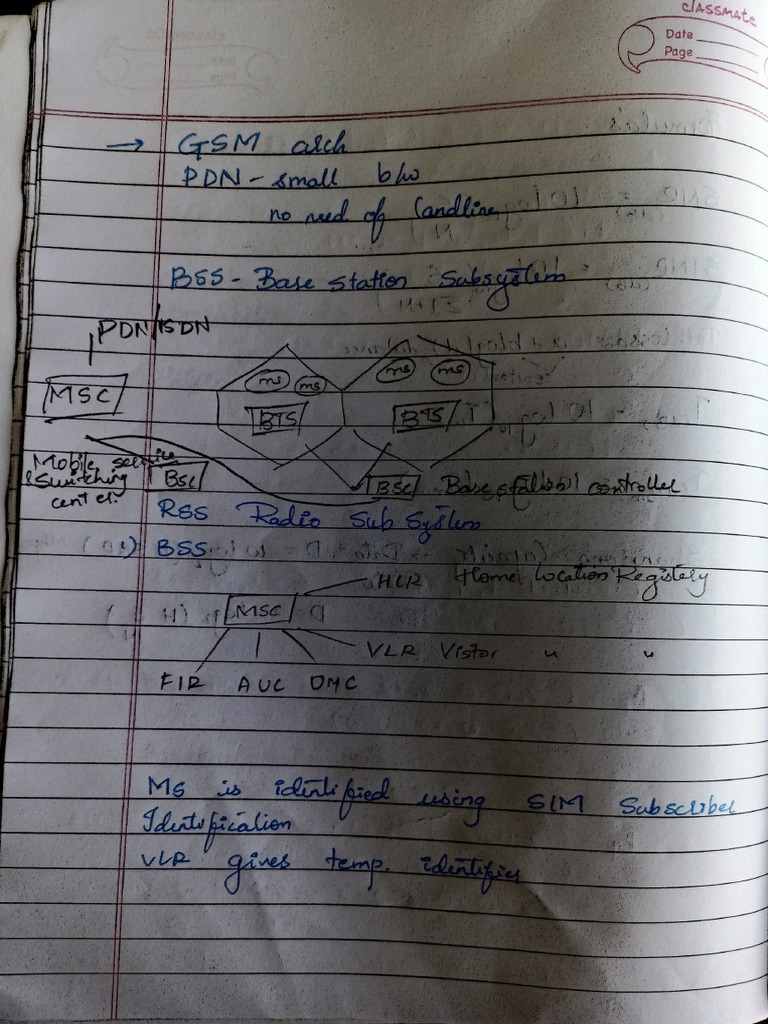 classmate
Date
Page
→ GSM arch
PDN - small b/w
no need of landline
BSS - Base Station Subsystem
PDN/ISDN
MSC
ms ms ms ms
BTS BTS
Mobile service
& Switching
center.
BSC BSC Base station controller
RSS Radio Sub System
1) BSS
HLR Home Location Registery
MSC
VLR Vistor " "
EIR AUC OMC
MS is identified using SIM Subscriber
Identification
VLR gives temp. identifier